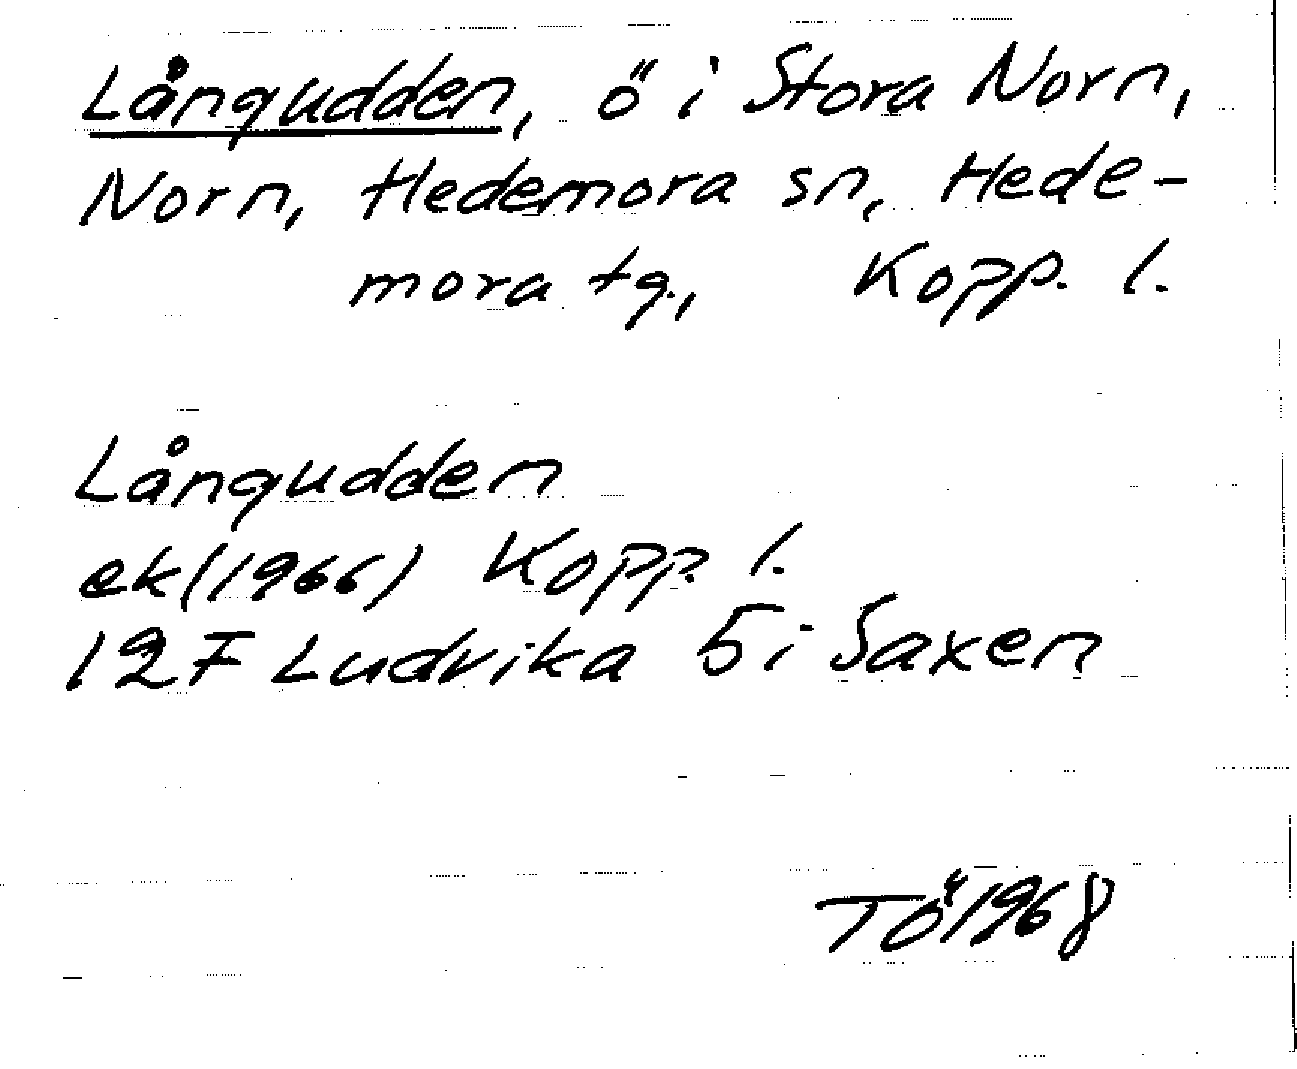 Långudden, ö i Stora Norn,
Norn, Hedemora sn, Hede-
mora tg., Kopp. l.
Långudden
ek(1966) Kopp. l.
12F Ludvika 5i Saxen
TÖ 1968